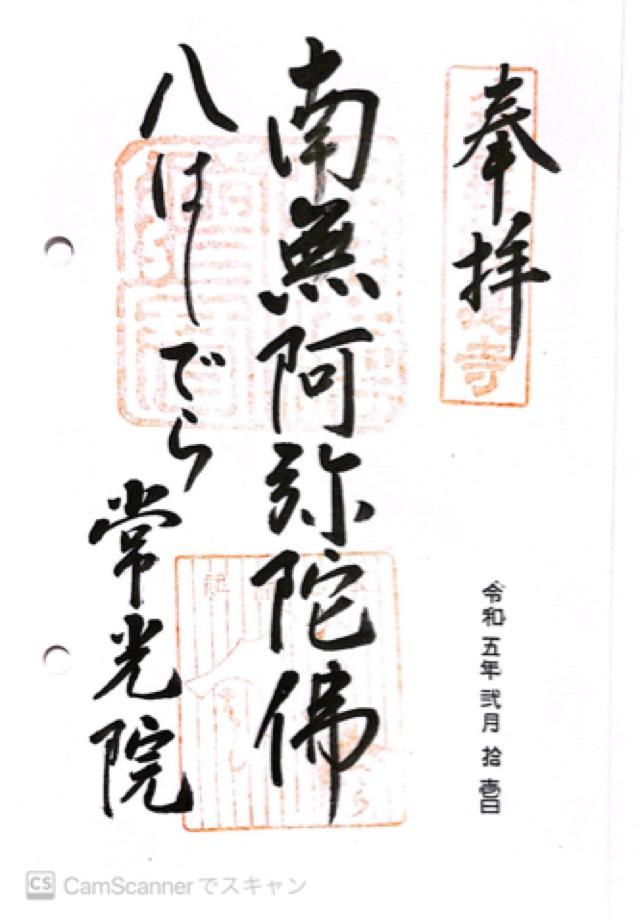 奉拝
南無阿弥陀佛
八はしでら
常光院
令和五年弐月拾壱日
CS CamScannerでスキャン